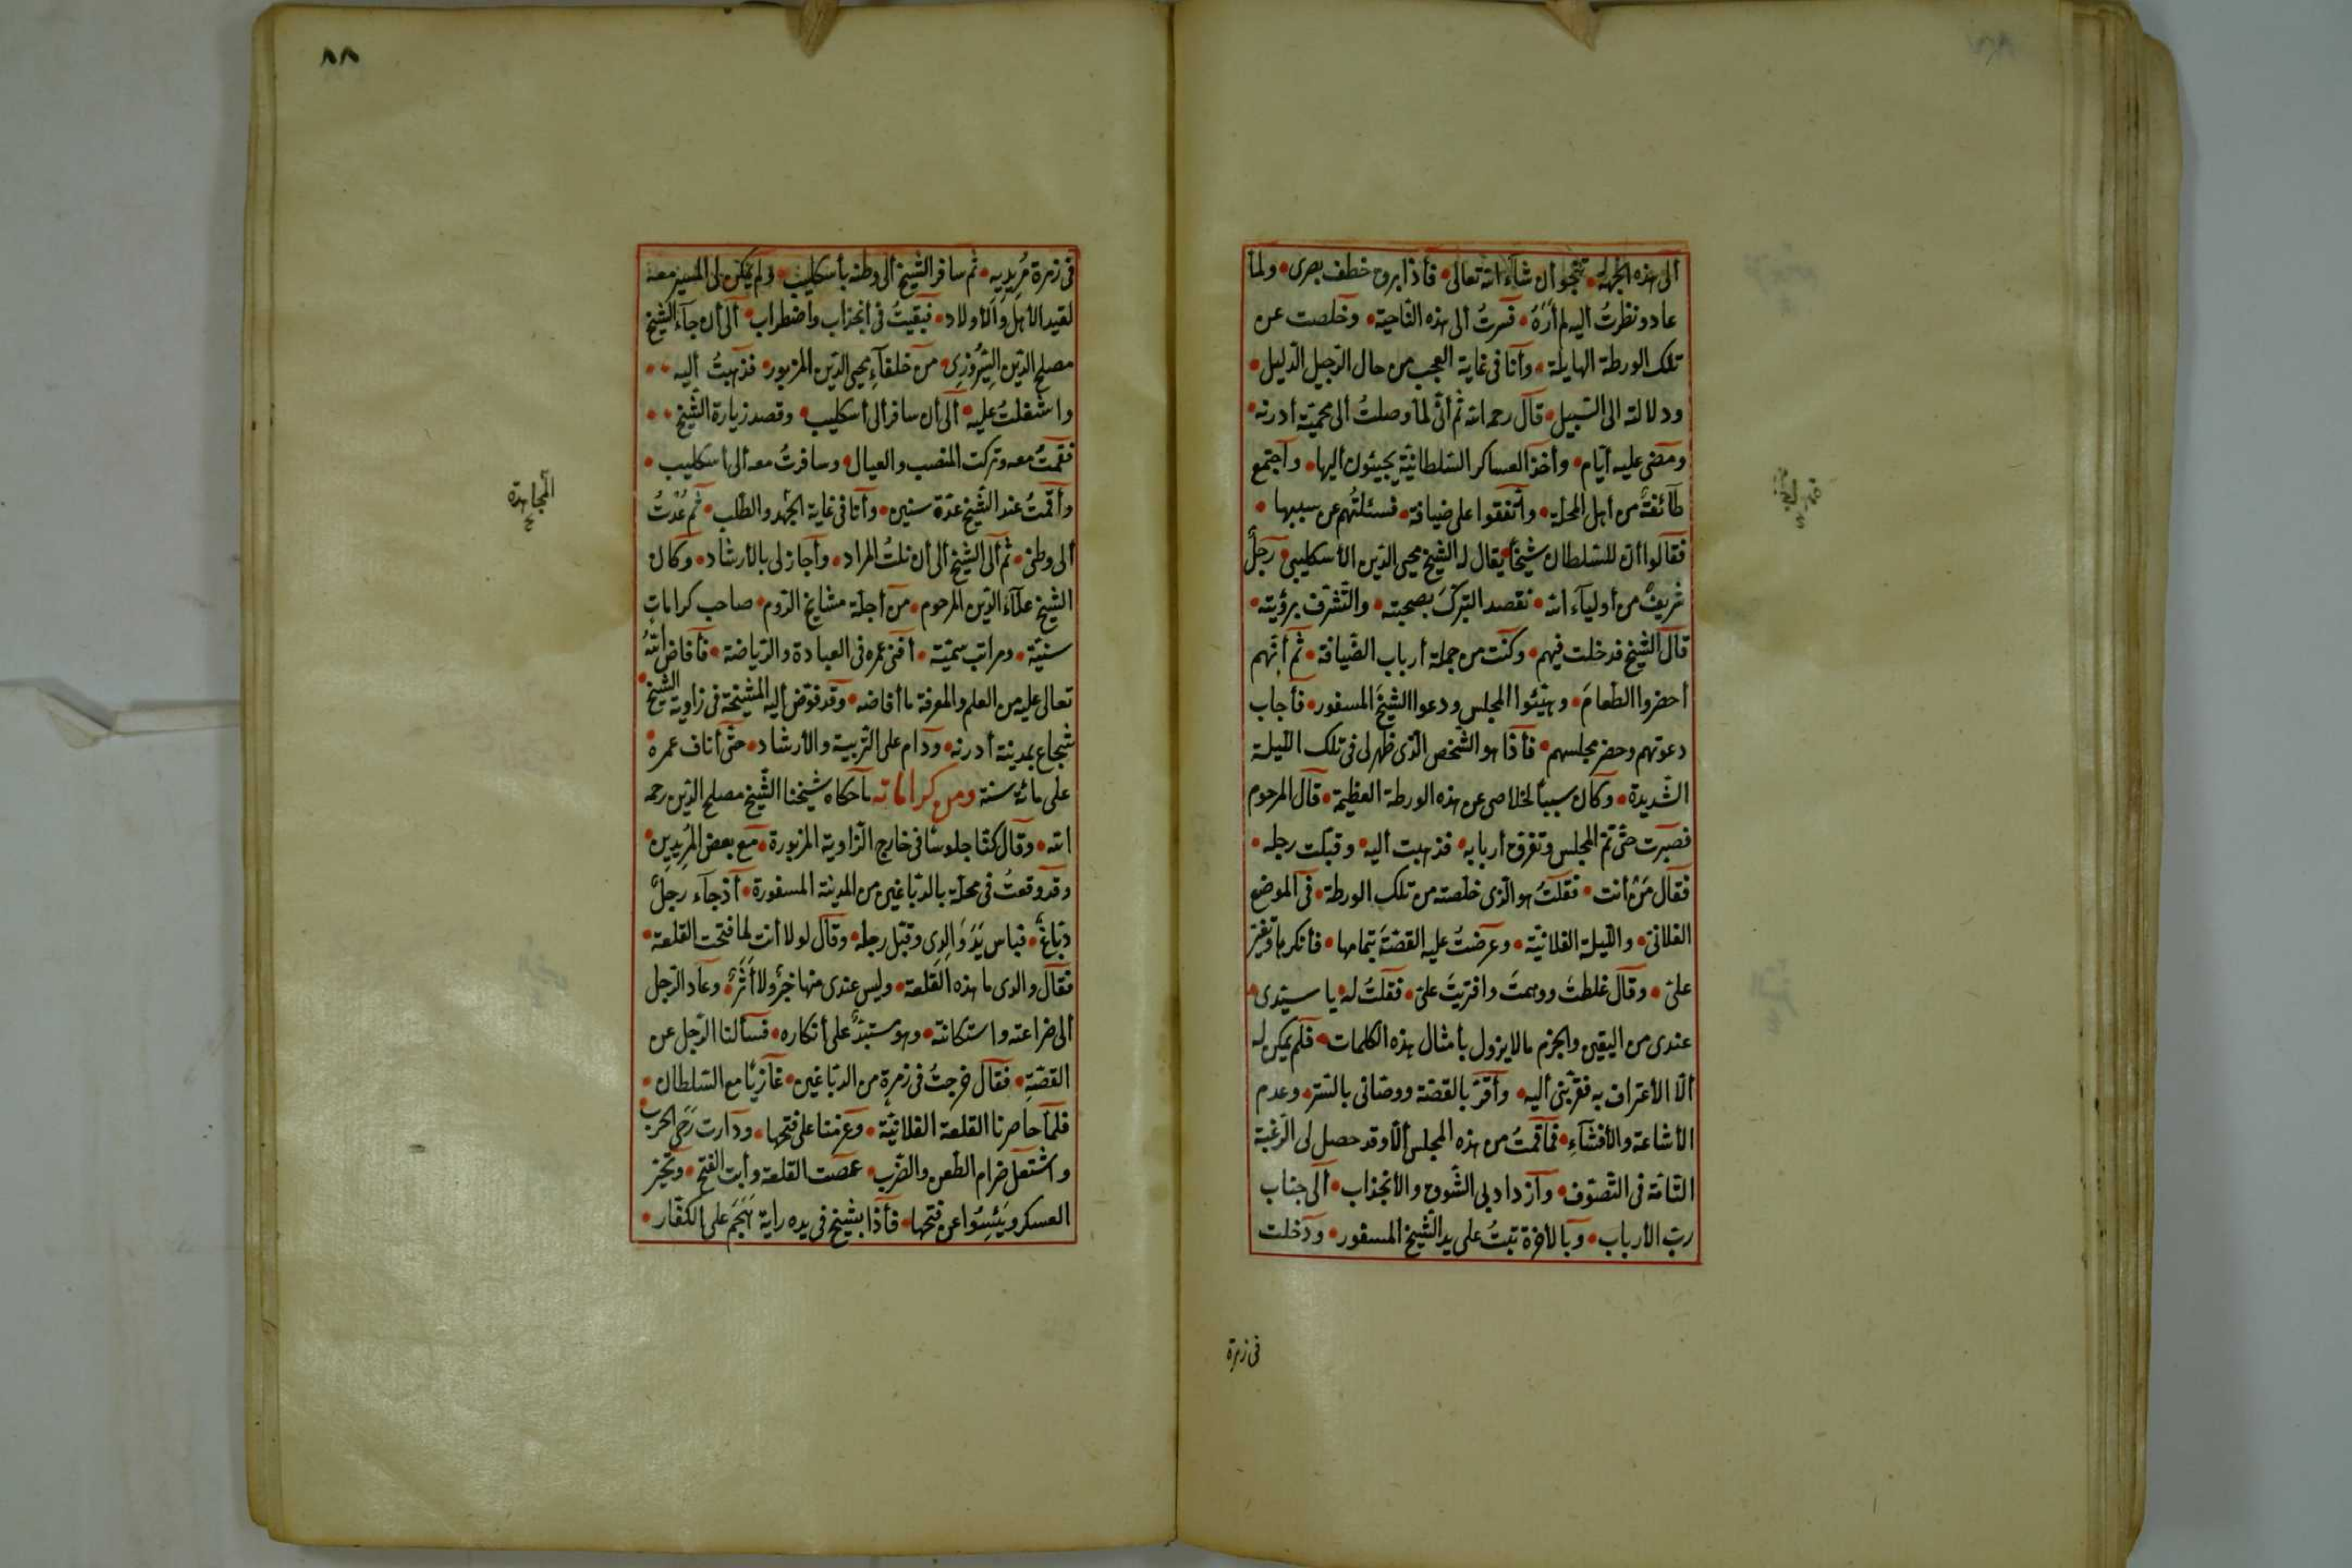 ألى هذه الجهة تنجو أن شآء الله تعالى فأذا بروح خطف بصرى ولما
عاد ونظرتُ أليه لم أرَهُ فسرتُ ألى هذه النّاحية وخلصت عن
تلك الورطة الهايلة وأنا فى غاية العجب من حال الرّجيل الدّليل
ودلالته الى السّبيل قال رحمه الله ثم أنّى لمّا وصلتُ ألى محميّة أدرنه
ومضى عليه أيّام وأخذ العساكر السّلطانيّة يجيئون أليها وأجتمع
طآئفةٌ من أهل المحلّة وأتّفقوا على ضيافة فسئلتُهم عن سببها
فقالوا أنّ للسّلطان شيخاً يقال له الشّيخ محيى الدّين الأسكليبى رجلٌ
شريفٌ من أوليآء الله نقصد التبرّكَ بصحبته والتّشرّف برؤيته
قال الشّيخ فدخلت فيهم وكنت من جملة أرباب الضّيافة ثم أنّهم
أحضروا الطّعامَ وهيّئوا المجلس ودعوا الشّيخَ المسفور فأجاب
دعوتهم وحضر مجلسهم فأذا هو الشّخص الّذى ظهر لى فى تلك اللّيلة
الشّديدة وكان سبباً لخلاصى عن هذه الورطة العظيمة قال المرحوم
فصبرت حتّى تمّ المجلس وتفرّق أربابه فذهبت أليه وقبّلت رجله
فقال مَنْ أنت فقلتُ هو الّذى خلّصته من تلك الورطة فى الموضع
الفلانىّ واللّيلة الفلانيّة وعرضتُ عليه القصّةَ بتمامها فأنكرها وتغيّر
علىّ وقال غلطتَ ووهمتَ وافتريتَ علىّ فقلتُ له يا سيّدى
عندى من اليقين والجزم ما لا يزول بأمثال هذه الكلمات فلم يمكن له
ألّا الأعتراف به فقرّبنى أليه وأقرّ بالقصّة ووصّانى بالسّتر وعدم
الأشاعة والأفشآءِ فما قمتُ من هذه المجلس ألّا وقد حصل لى الرّغبة
التّامّة فى التّصوّف وأزداد بى الشّوق والأنجذاب ألى جناب
ربّ الأرباب وبالأخرة تبتُ على يد الشّيخ المسفور ودخلت
فى زمرة
٨٨
فى زمرة مُريدِيه ثم سافر الشّيخ ألى وطنه بأسكليب ولم يمكن لى المسير معه
لقيد الأهل والأولاد فبقيتُ فى أنجذاب واضطراب ألى أن جآء الشّيخ
مصلح الدّين السِّيرُوزِى من خلفآءِ محيى الدّين المزبور فذهبتُ أليه
واشتغلتُ عليه ألى أن سافر ألى أسكليب وقصد زيارة الشّيخ
فقمتُ معه وتركت المنصب والعيال وسافرتُ معه ألى أسكليب
وأقمتُ عند الشّيخ عدّة سنين وأنا فى غاية الجهد والطّلب ثم عُدتُ
المجاهدة خ
ألى وطنى ثم ألى الشّيخ ألى أن نلتُ المراد وأجاز لى بالأرشاد وكان
الشّيخ علآء الدّين المرحوم من أجلّة مشايخ الرّوم صاحب كراماتٍ
سنيّة ومراتب سميّة أفنى عمره فى العبادة والرّياضة فأفاض اللهُ
تعالى عليه من العلم والمعرفة ما أفاضه وقد فوّض أليه المشيخة فى زاوية الشّيخ
شجاع بمدينة أدرنه ودام على التّربية والأرشاد حتّى أناف عمره
على مائة سنة ومن كراماته ما حكاه شيخنا الشّيخ مصلح الدّين رحمه
الله وقال كنّا جلوسًا فى خارج الزّاوية المزبورة مع بعض المُرِيدِين
وقد وقعتُ فى محلّة بالدّبّاغين من المدينة المسفورة أذ جآء رجلٌ
دبّاغٌ فباس يَدَ وَالِدِى وقبّل رجله وقال لولا أنت لما فتحت القلعة
فقال والدى ما هذه القلعة وليس عندى منها خبرٌ ولا أَثَرٌ وعاد الرّجل
ألى ضراعته واستكانته وهو مستبدٌّ على أنكاره فسألنا الرّجل عن
القصّةِ فقال خرجتُ فى زمرةٍ من الدبّاغين غازيًا مع السّلطان
فلمّا حاصرنا القلعة الفلانيّة وعزمنا على فتحها ودارت رَحَى الحرب
واشتعل ضرام الطّعن والضّرب عصت القلعة وأبت الفتح وتحيّر
العسكر ويَئِسُوا عن فتحها فأذا بشيخ فى يده راية هَجَم على الكفّار